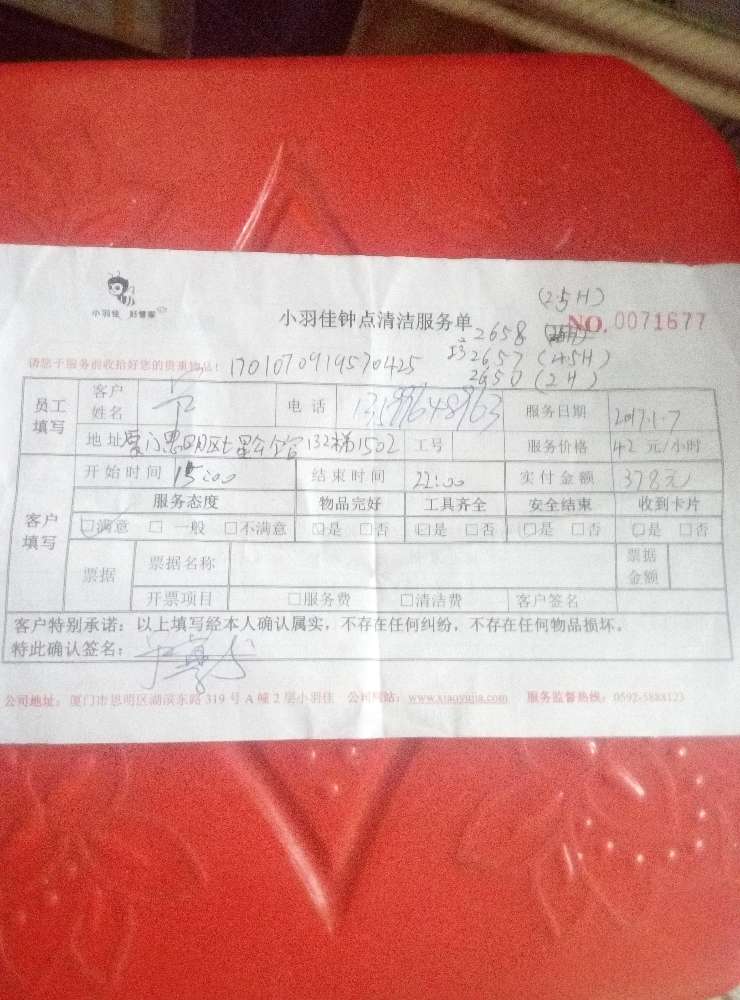 (2.5H)
小羽佳 好管家
小羽佳钟点清洁服务单 2658 NO. 0071677
2657 (4.5H)
请您于服务前收拾好您的贵重物品! 1701070919570425
2650 (2H)
员工填写 客户姓名 电话 服务日期 2017.1.7
地址 厦门思明区七星公寓132梯1502 工号 服务价格 42 元/小时
客户填写 开始时间 15:00 结束时间 22:00 实付金额 378元
服务态度 物品完好 工具齐全 安全结束 收到卡片
□满意 □一般 □不满意 □是 □否 □是 □否 □是 □否 □是 □否
票据 票据名称 票据金额
开票项目 □服务费 □清洁费 客户签名
客户特别承诺：以上填写经本人确认属实，不存在任何纠纷，不存在任何物品损坏。
特此确认签名：
公司地址：厦门市思明区湖滨东路 319 号 A 幢 2 层小羽佳 公司网站：www.xiaoyujia.com 服务监督热线：0592-5888123